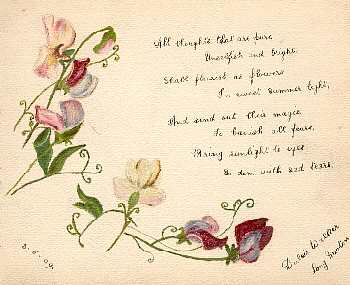 All thoughts that are pure
Unselfish and bright
Shall flourish as flowers
In sweet summer light,
And send out their magic
To banish all fears,
Bring sunlight to eyes
So dim with sad tears.
8.6.09
Long Eaton